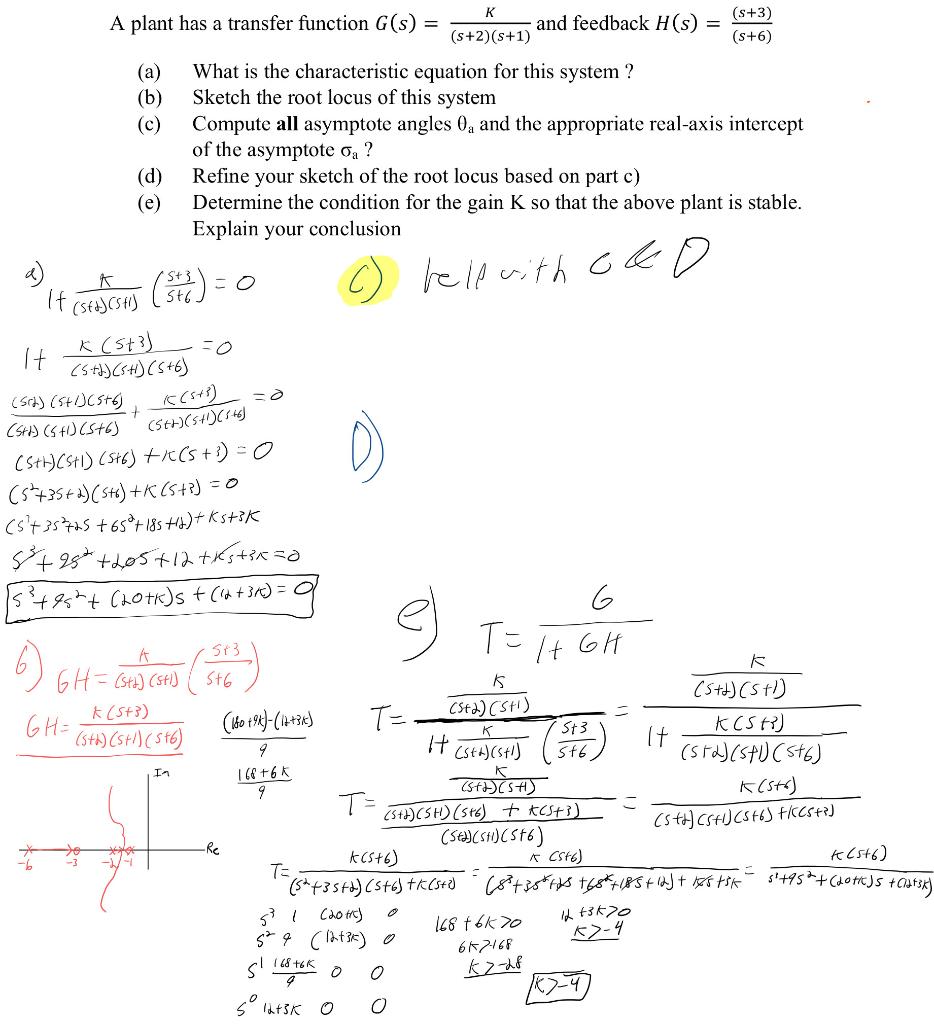 A plant has a transfer function G(s) = K/((s+2)(s+1)) and feedback H(s) = (s+3)/(s+6)
(a) What is the characteristic equation for this system ?
(b) Sketch the root locus of this system
(c) Compute all asymptote angles θa and the appropriate real-axis intercept
of the asymptote σa ?
(d) Refine your sketch of the root locus based on part c)
(e) Determine the condition for the gain K so that the above plant is stable.
Explain your conclusion
a) 1+ K/((s+2)(s+1)) ((s+3)/(s+6)) = 0
1+ K(s+3)/((s+2)(s+1)(s+6)) = 0
(s+2)(s+1)(s+6)/((s+2)(s+1)(s+6)) + K(s+3)/((s+2)(s+1)(s+6)) = 0
(s+2)(s+1)(s+6) + K(s+3) = 0
(s²+3s+2)(s+6) + K(s+3) = 0
(s³+3s²+2s+6s²+18s+12) + Ks+3K
s³+9s²+20s+12+Ks+3K=0
s³+9s²+(20+K)s+(12+3K)=0
C) help with C & D
D)
b) GH = K/((s+2)(s+1)) ((s+3)/(s+6))
GH = K(s+3)/((s+2)(s+1)(s+6))
Im
Re
-6 -3 -2 -1
((180+9K)-(12+3K))/9
(168+6K)/9
e) T = G/(1+GH)
T = (K/((s+2)(s+1)))/(1+ K/((s+2)(s+1)) ((s+3)/(s+6))) = (K/((s+2)(s+1)))/(1+ K(s+3)/((s+2)(s+1)(s+6)))
T = (K/((s+2)(s+1)))/(((s+2)(s+1)(s+6) + K(s+3))/((s+2)(s+1)(s+6))) = K(s+6)/((s+2)(s+1)(s+6)+K(s+3))
T = K(s+6)/((s²+3s+2)(s+6)+K(s+3)) = K(s+6)/((s³+3s²+2s+6s²+18s+12)+Ks+3K) = K(s+6)/(s³+9s²+(20+K)s+(12+3K))
s³ 1 (20+K) 0
s² 9 (12+3K) 0
s¹ (168+6K)/9 0 0
s⁰ 12+3K 0 0
168+6K>0
6K>-168
K>-28
12+3K>0
K>-4
K>-4